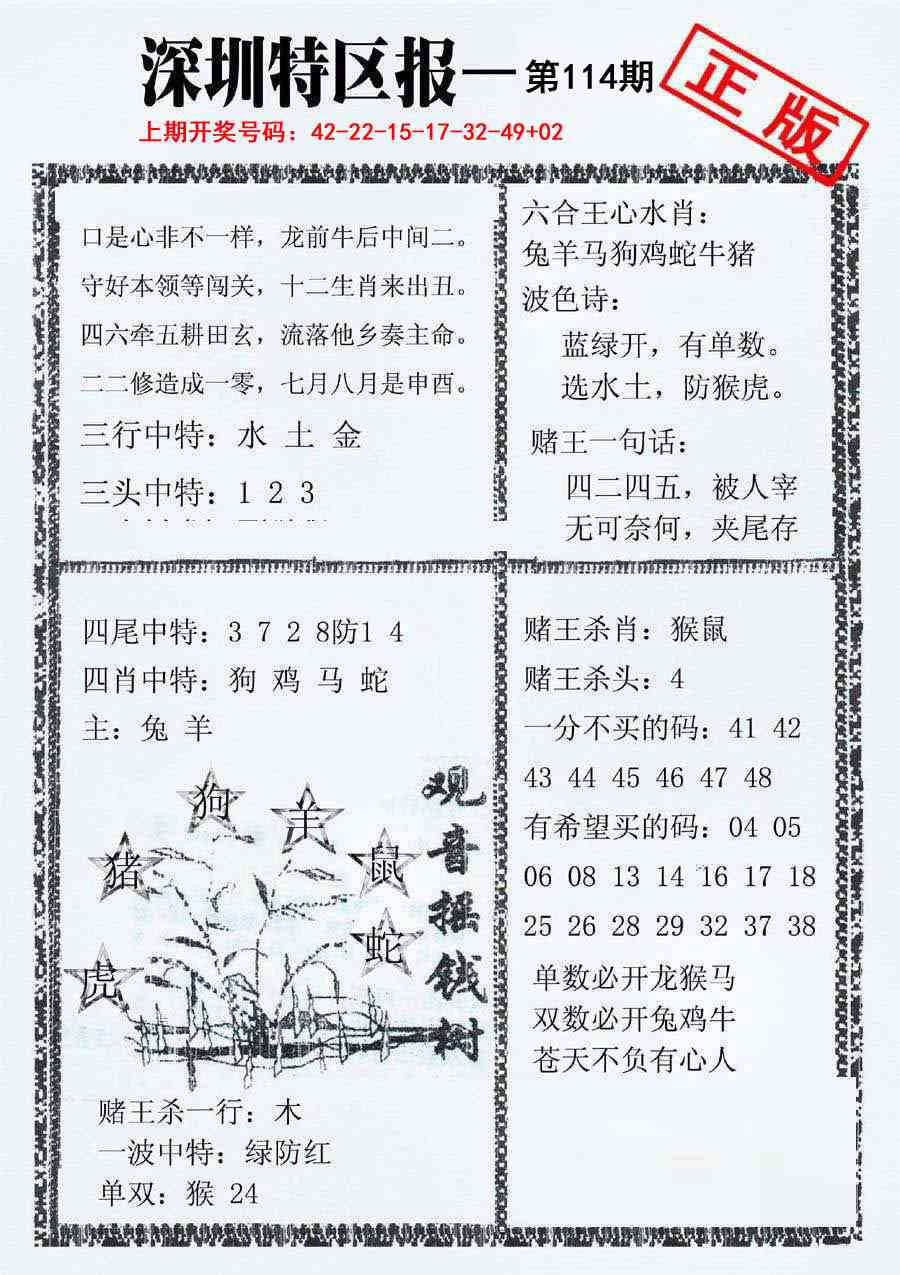 深圳特区报—第114期
正版
上期开奖号码：42-22-15-17-32-49+02
口是心非不一样，龙前牛后中间二。
守好本领等闯关，十二生肖来出丑。
四六牵五耕田玄，流落他乡奏主命。
二二修造成一零，七月八月是申酉。
三行中特：水 土 金
三头中特：1 2 3
六合王心水肖：
兔羊马狗鸡蛇牛猪
波色诗：
蓝绿开，有单数。
选水土，防猴虎。
赌王一句话：
四二四五，被人宰
无可奈何，夹尾存
四尾中特：3 7 2 8防1 4
四肖中特：狗 鸡 马 蛇
主：兔 羊
狗
羊
猪
鼠
蛇
虎
观音摇钱树
赌王杀一行：木
一波中特：绿防红
单双：猴 24
赌王杀肖：猴鼠
赌王杀头：4
一分不买的码：41 42
43 44 45 46 47 48
有希望买的码：04 05
06 08 13 14 16 17 18
25 26 28 29 32 37 38
单数必开龙猴马
双数必开兔鸡牛
苍天不负有心人